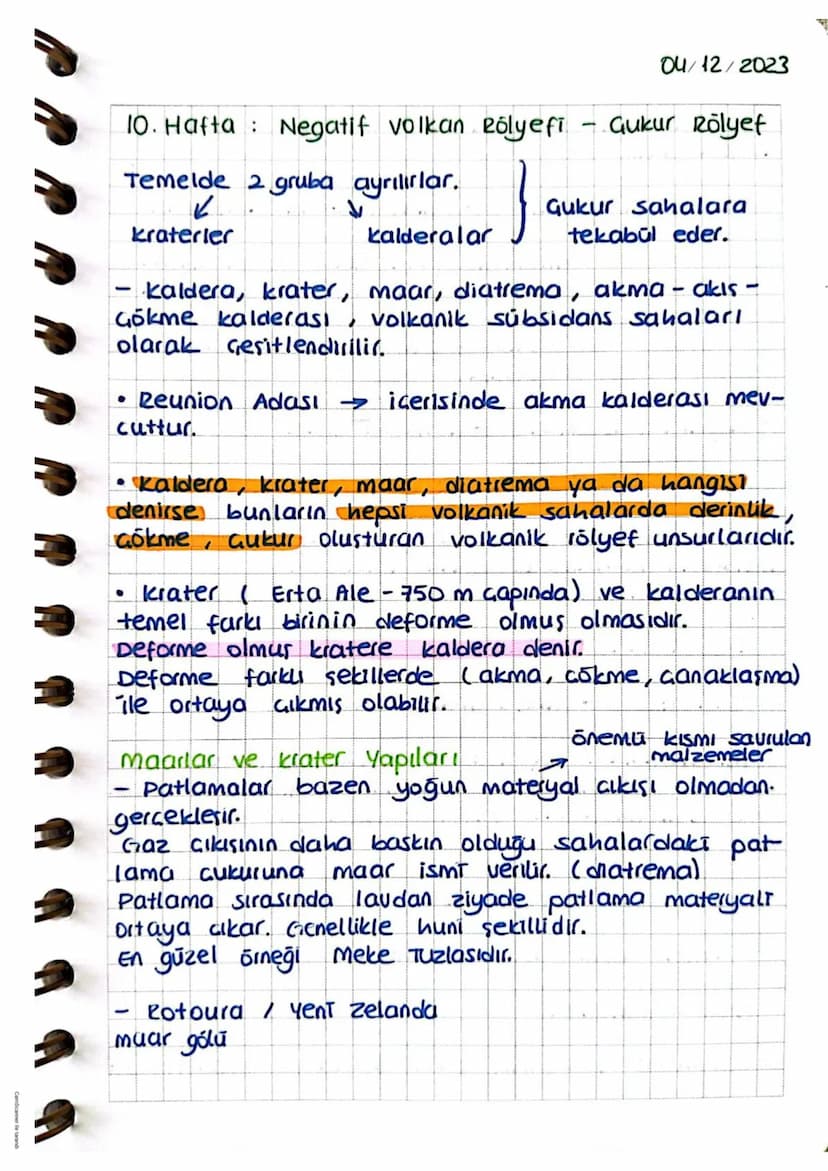 04/12/2023
10. Hafta : Negatif Volkan Rölyefi - Çukur Rölyef
Temelde 2 gruba ayrılırlar.
Kraterler Kalderalar
Çukur sahalara
tekabül eder.
- Kaldera, krater, maar, diatrema, akma - akış -
çökme kalderası, volkanik sübsidans sahaları
olarak çeşitlendirilir.
• Reunion Adası → içerisinde akma kalderası mev-
cuttur.
• Kaldera, krater, maar, diatrema ya da hangisi
denirse bunların hepsi volkanik sahalarda derinlik,
çökme, çukur oluşturan volkanik rölyef unsurlarıdır.
• Krater ( Erta Ale - 750 m çapında) ve kalderanın
temel farkı birinin deforme olmuş olmasıdır.
Deforme olmuş kratere kaldera denir.
Deforme farklı şekillerde (akma, çökme, çanaklaşma)
ile ortaya çıkmış olabilir.
önemli kısmı savrulan
malzemeler
Maarlar ve Krater Yapıları
- Patlamalar bazen yoğun materyal çıkışı olmadan
gerçekleşir.
Gaz çıkışının daha baskın olduğu sahalardaki pat-
lama çukuruna maar ismi verilir. (diatrema)
Patlama sırasında lavdan ziyade patlama materyali
ortaya çıkar. Genellikle huni şekillidir.
En güzel örneği Meke Tuzlasıdır.
- Rotoura / Yeni Zelanda
muar gölü
CamScanner ile tarandı